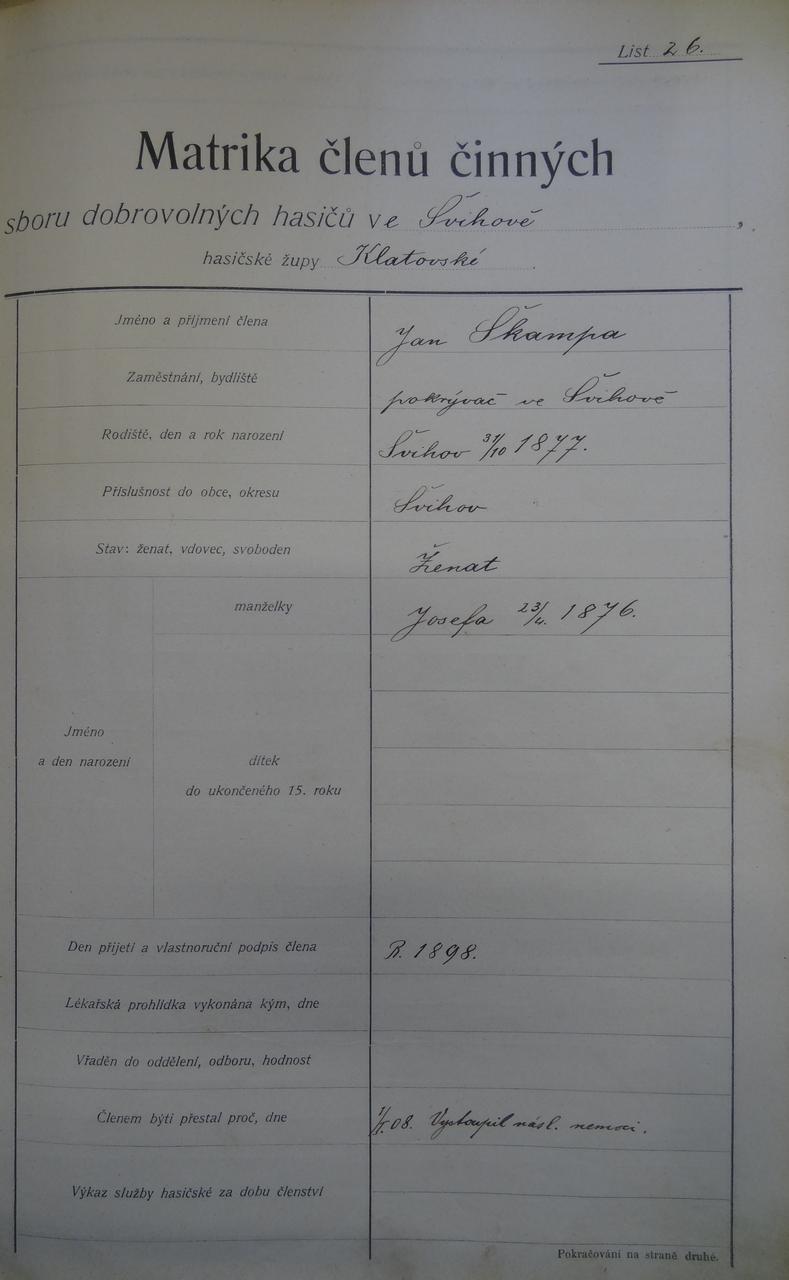 List 26.
Matrika členů činných
sboru dobrovolných hasičů ve Švihově,
hasičské župy Klatovské
Jméno a příjmení člena Jan Škampa
Zaměstnání, bydliště pokrývač ve Švihově
Rodiště, den a rok narození Švihov 31/10 1877.
Příslušnost do obce, okresu Švihov
Stav: ženat, vdovec, svoboden Ženat
manželky Josefa 23/4. 1876.
Jméno
a den narození dítek
do ukončeného 15. roku
Den přijetí a vlastnoruční podpis člena R. 1898.
Lékařská prohlídka vykonána kým, dne
Vřaděn do oddělení, odboru, hodnost
Členem býti přestal proč, dne 08. Vystoupil násl. nemoci.
Výkaz služby hasičské za dobu členství
Pokračování na straně druhé.